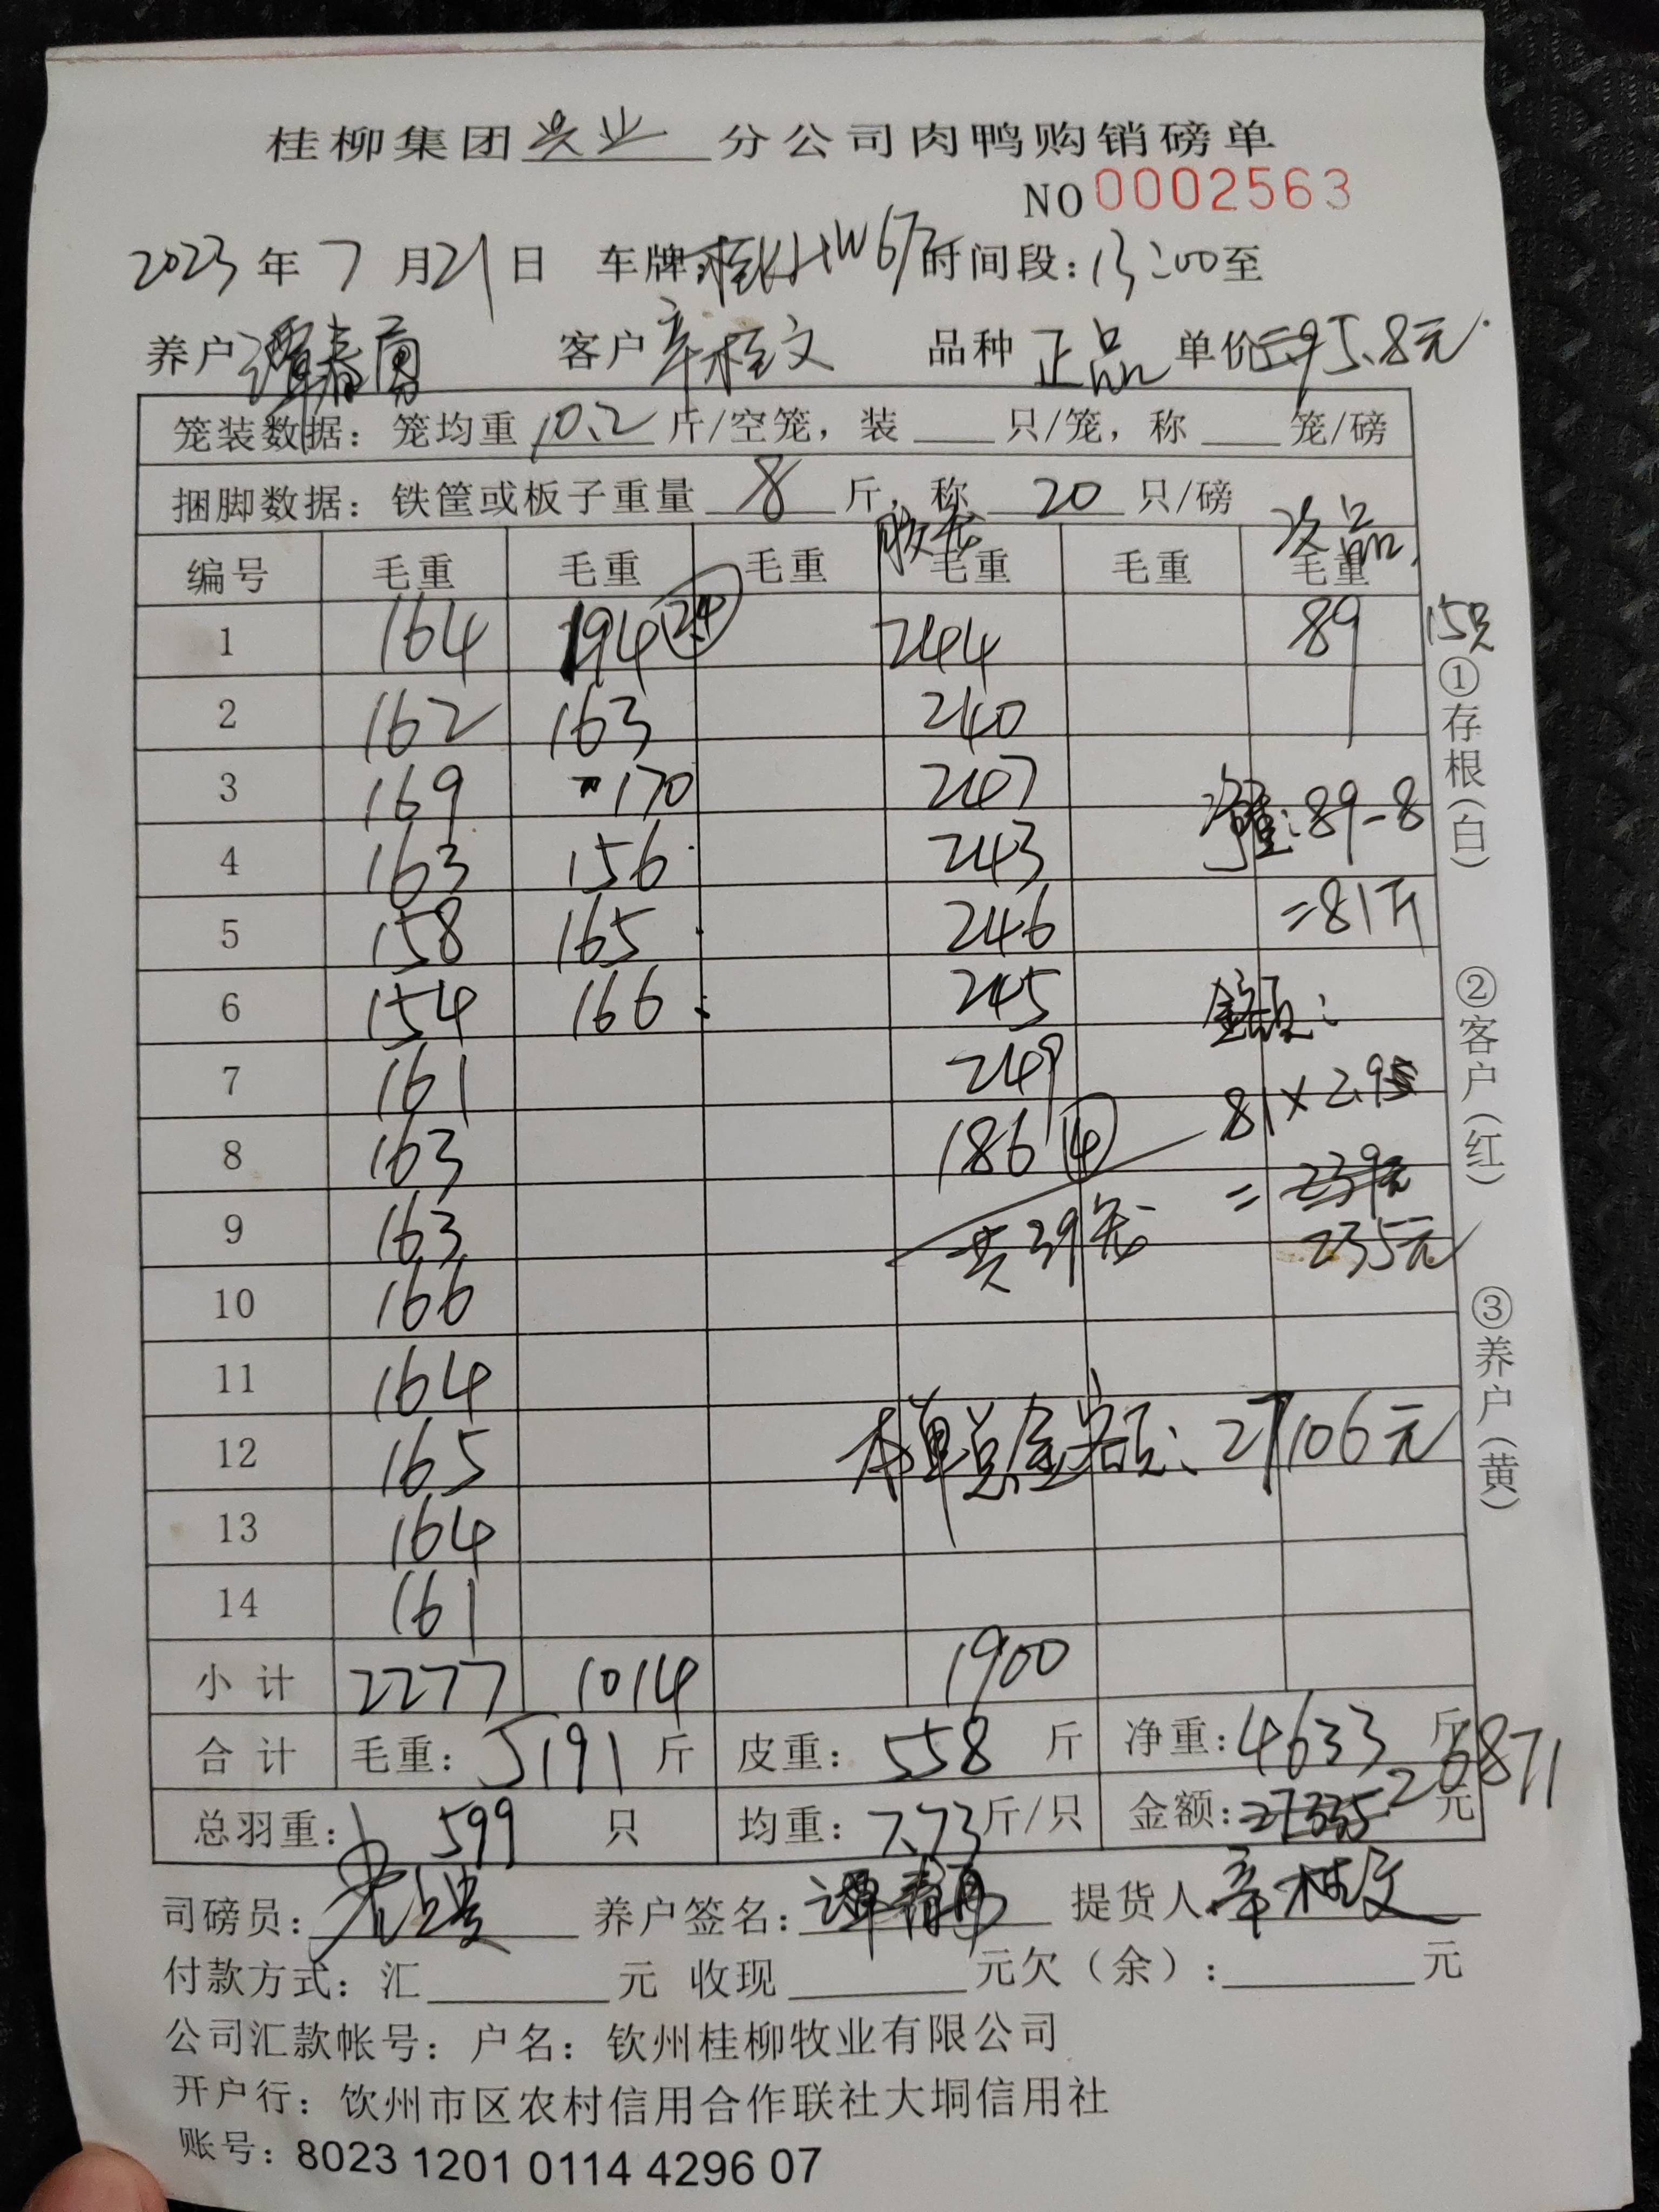 桂柳集团兴业分公司肉鸭购销磅单
NO 0002563
2023年7月21日 车牌: 时间段:13:00至
养户 谭春 客户 辛桂文 品种 正品 单价 5.8元
笼装数据:笼均重 10.2 斤/空笼,装 只/笼,称 笼/磅
捆脚数据:铁筐或板子重量 8 斤,称 20 只/磅
胶笼 次品
编号 毛重 毛重 毛重 毛重 毛重 毛重
1 164 194 24 244 89 15只
2 162 163 240
3 169 170 247 净重:89-8
4 163 156 243
5 158 165 246 =81斤
6 154 166 245 金额:
7 161 249 81×2.9
8 163 186 4
9 163 共39笼 = 239元
235元
10 166
11 164
12 165 本单总金额:27106元
13 164
14 161
小计 2277 1014 1900
合计 毛重:5191斤 皮重:558斤 净重:4633斤
总羽重: 599 只 均重:7.73斤/只 金额:27335 26871元
司磅员: 养户签名:谭春 提货人:辛桂文
付款方式:汇 元 收现 元欠(余): 元
公司汇款帐号:户名:钦州桂柳牧业有限公司
开户行:钦州市区农村信用合作联社大垌信用社
账号:8023 1201 0114 4296 07
①存根(白) ②客户(红) ③养户(黄)